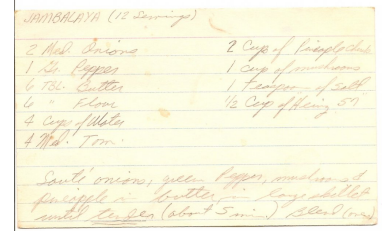 JAMBALAYA (12 Servings)
2 Med Onions
1 Lg. Pepper
6 TBL. Butter
6 " Flour
4 Cups of Water
4 Med. Tom.
2 Cup of Pineapple
1 Cup of mushrooms
1 Teaspoon of Salt
1/2 Cup of Heinz 57
Sauté onions, green Pepper, mushrooms &
pineapple in butter, in large skillet
until tender (about 5 min) Blend (over)